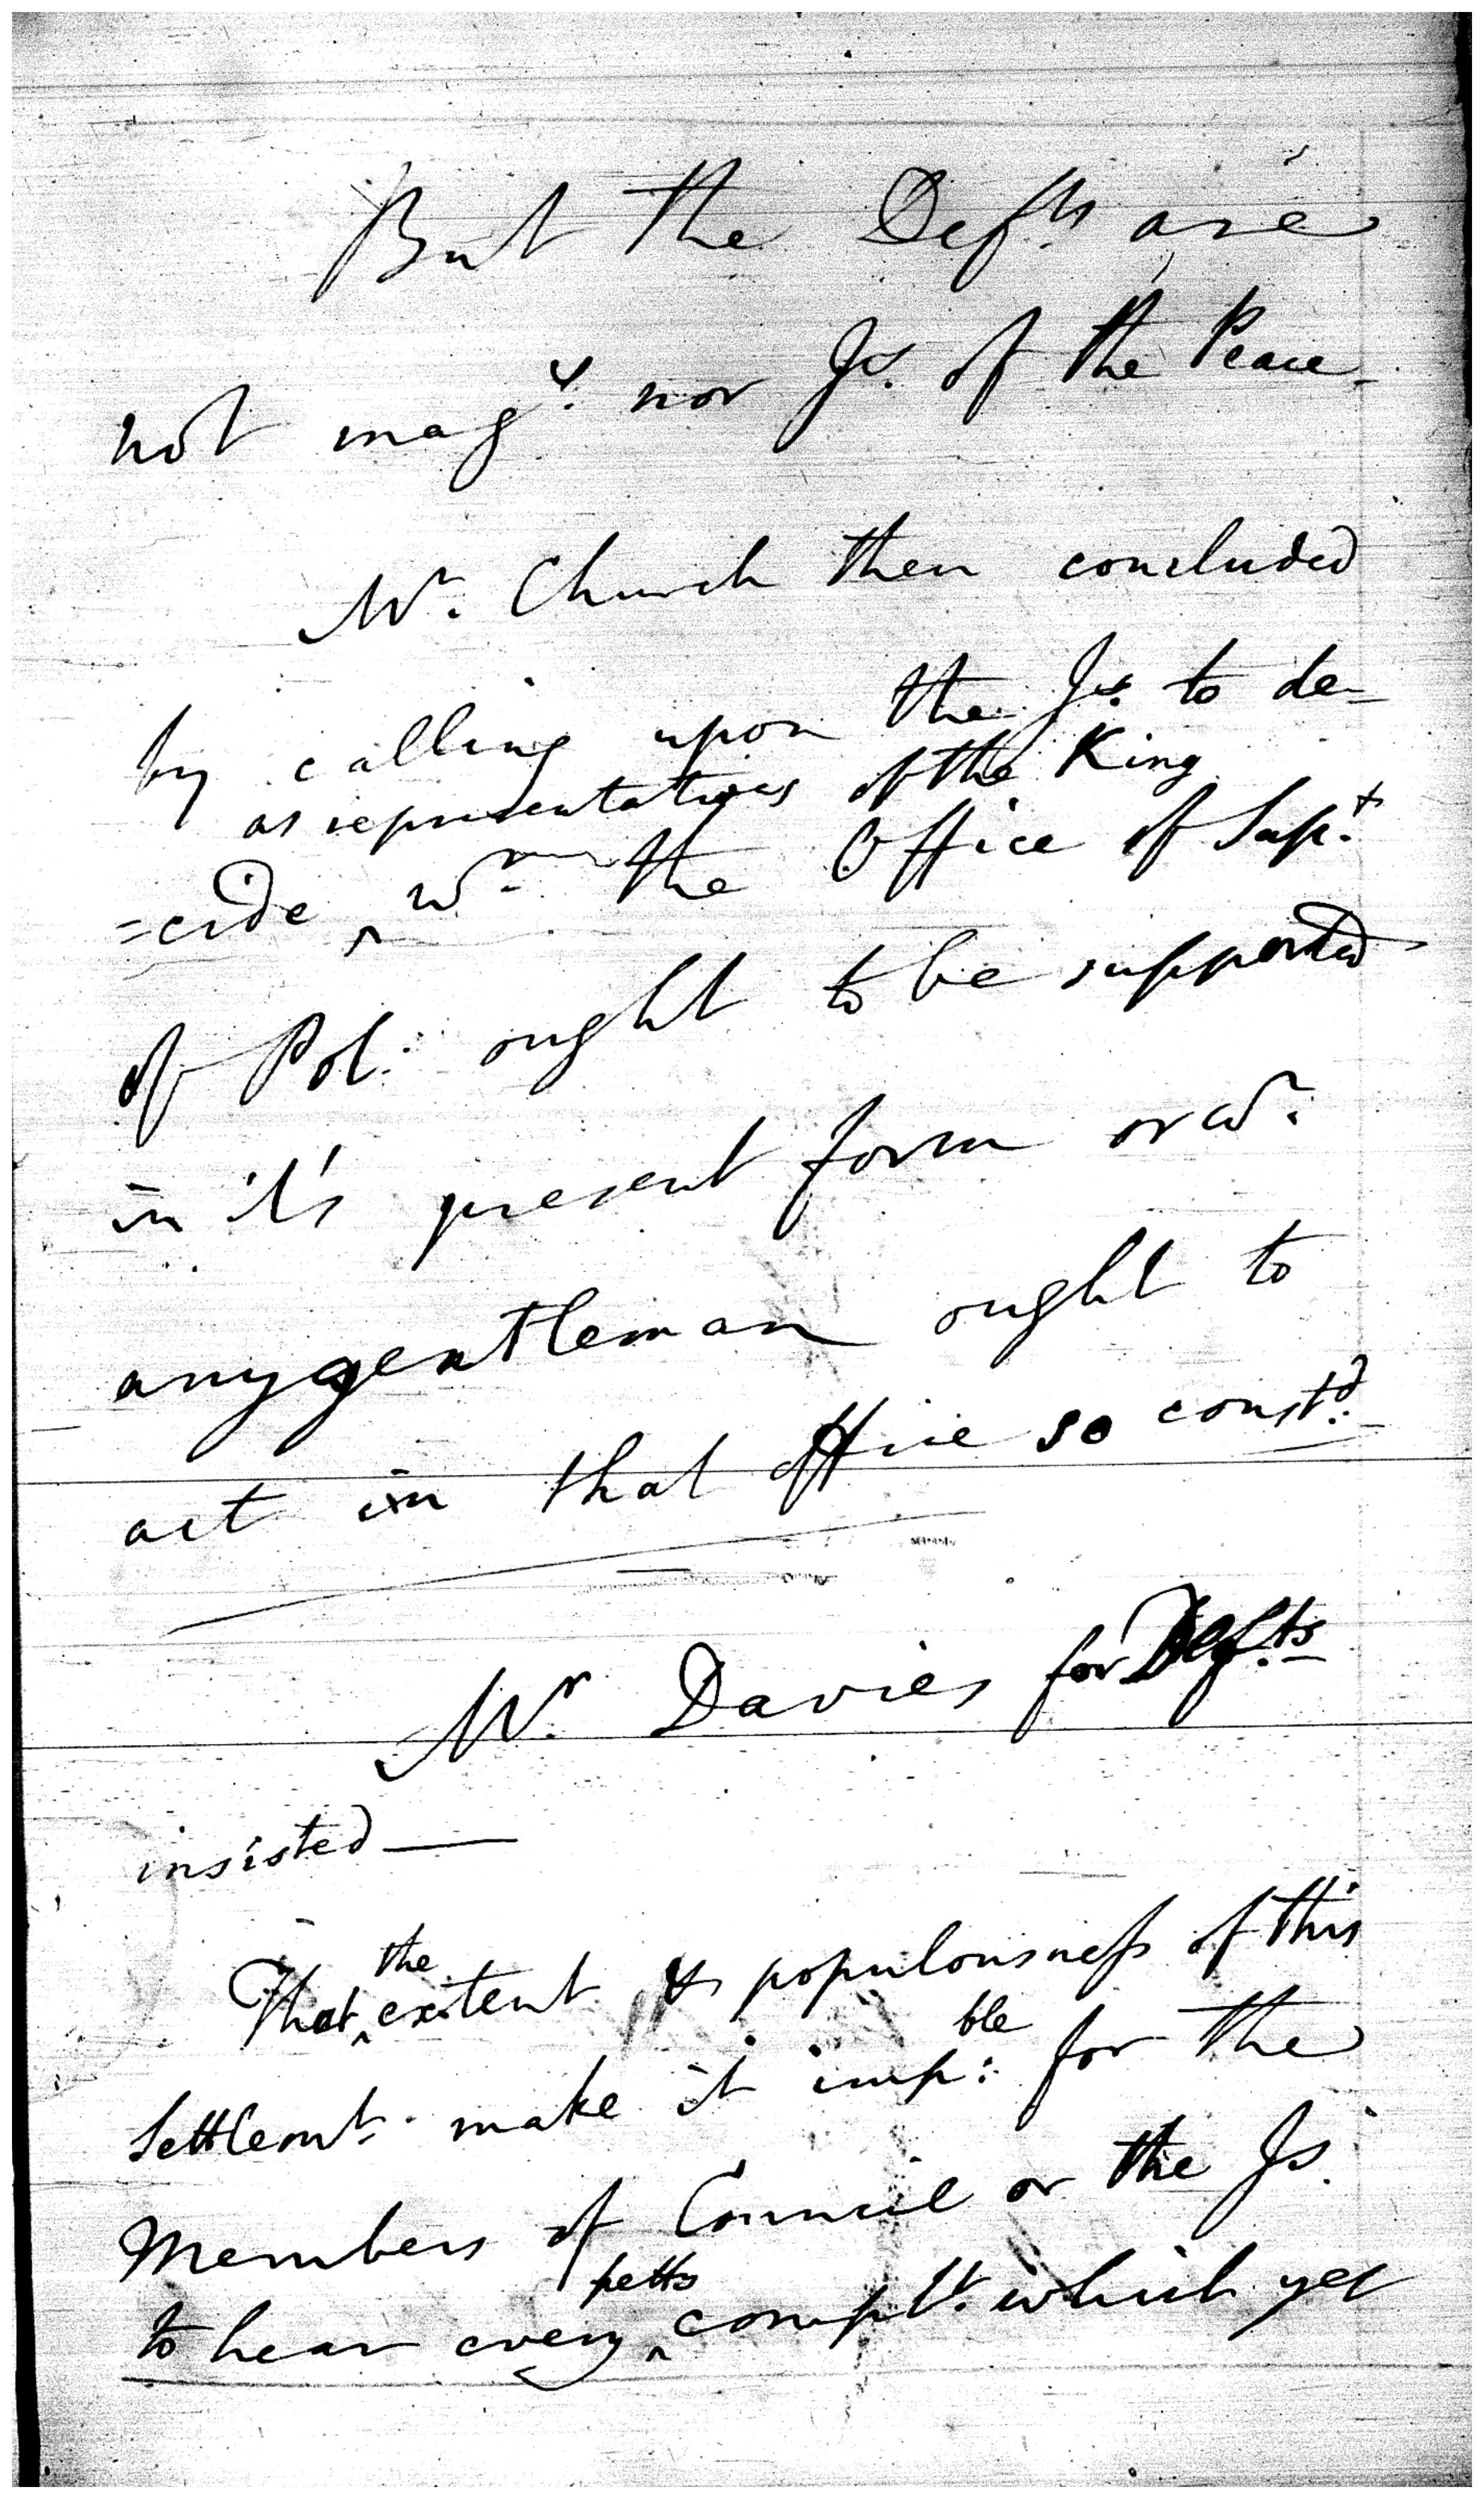 But the Defts. are
not mags. nor Js. of the Peace
Mr. Church then concluded
by calling upon the Js. to de-
as representatives of the King
=cide ^ wr. the Office of Supt.
of Pol: ought to be supported
in it's present form or wr.
any gentleman ought to
act in that office so constd.
Mr. Davies for Defts.
insisted —
the
That ^ extent & populousness of this
ble
Settlemt. make it imp: for the
Members of Council or the Js.
petty
to hear every ^ complt. which yet